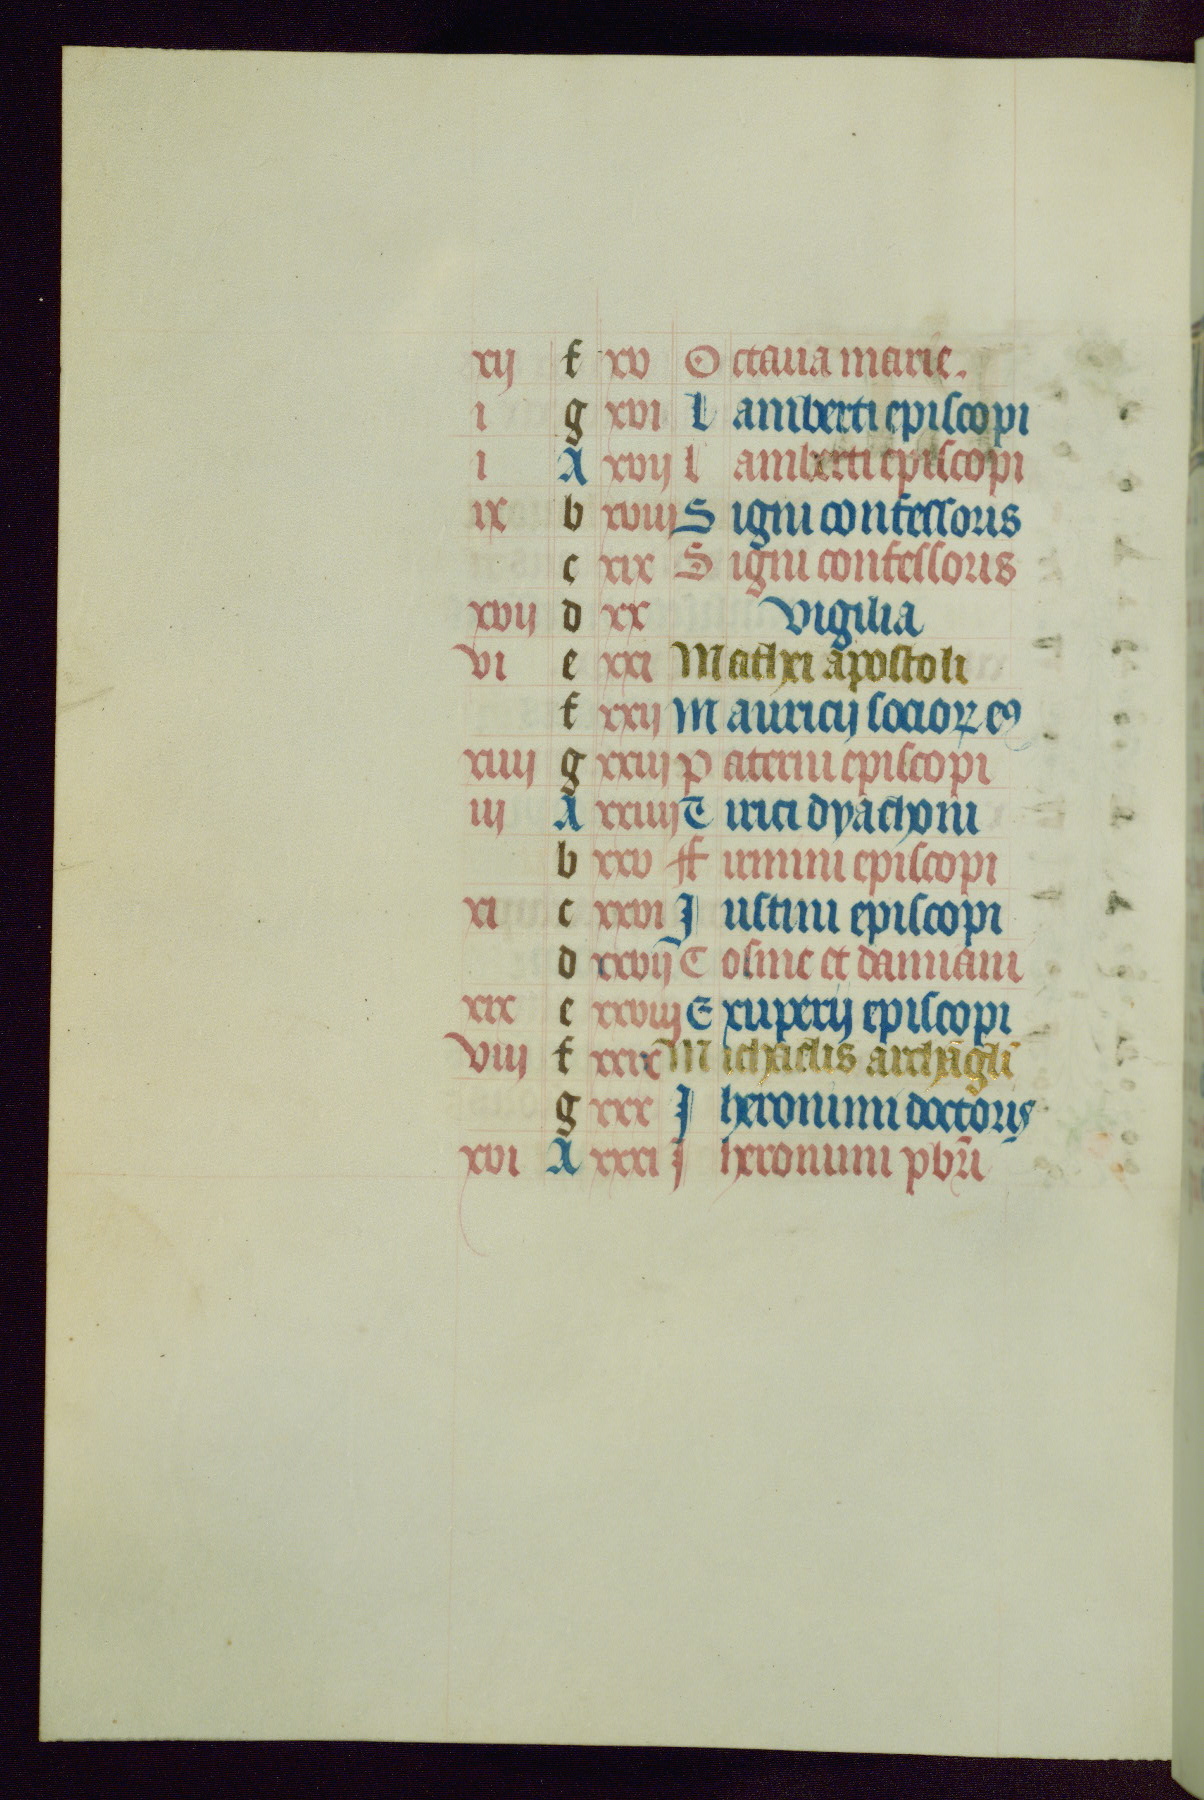 xij f xv Octaua marie.
i g xvi Lamberti episcopi
i A xvij lamberti episcopi
ix b xviij Signi confessoris
c xix Signi confessoris
xvij d xx vigilia
vi e xxi Mathei apostoli
f xxij Mauricij socioꝝ eꝯ
xiiij g xxiij paterni episcopi
iij A xxiiij Tirici dyachoni
b xxv ffirmini episcopi
xi c xxvi Justini episcopi
d xxvij Cosme et damiani
xix e xxviij Exuperij episcopi
viij f xxix Michaelis archāgli
g xxx Jheronimi doctoris
xvi A xxxi Jheronimi pbr̄i